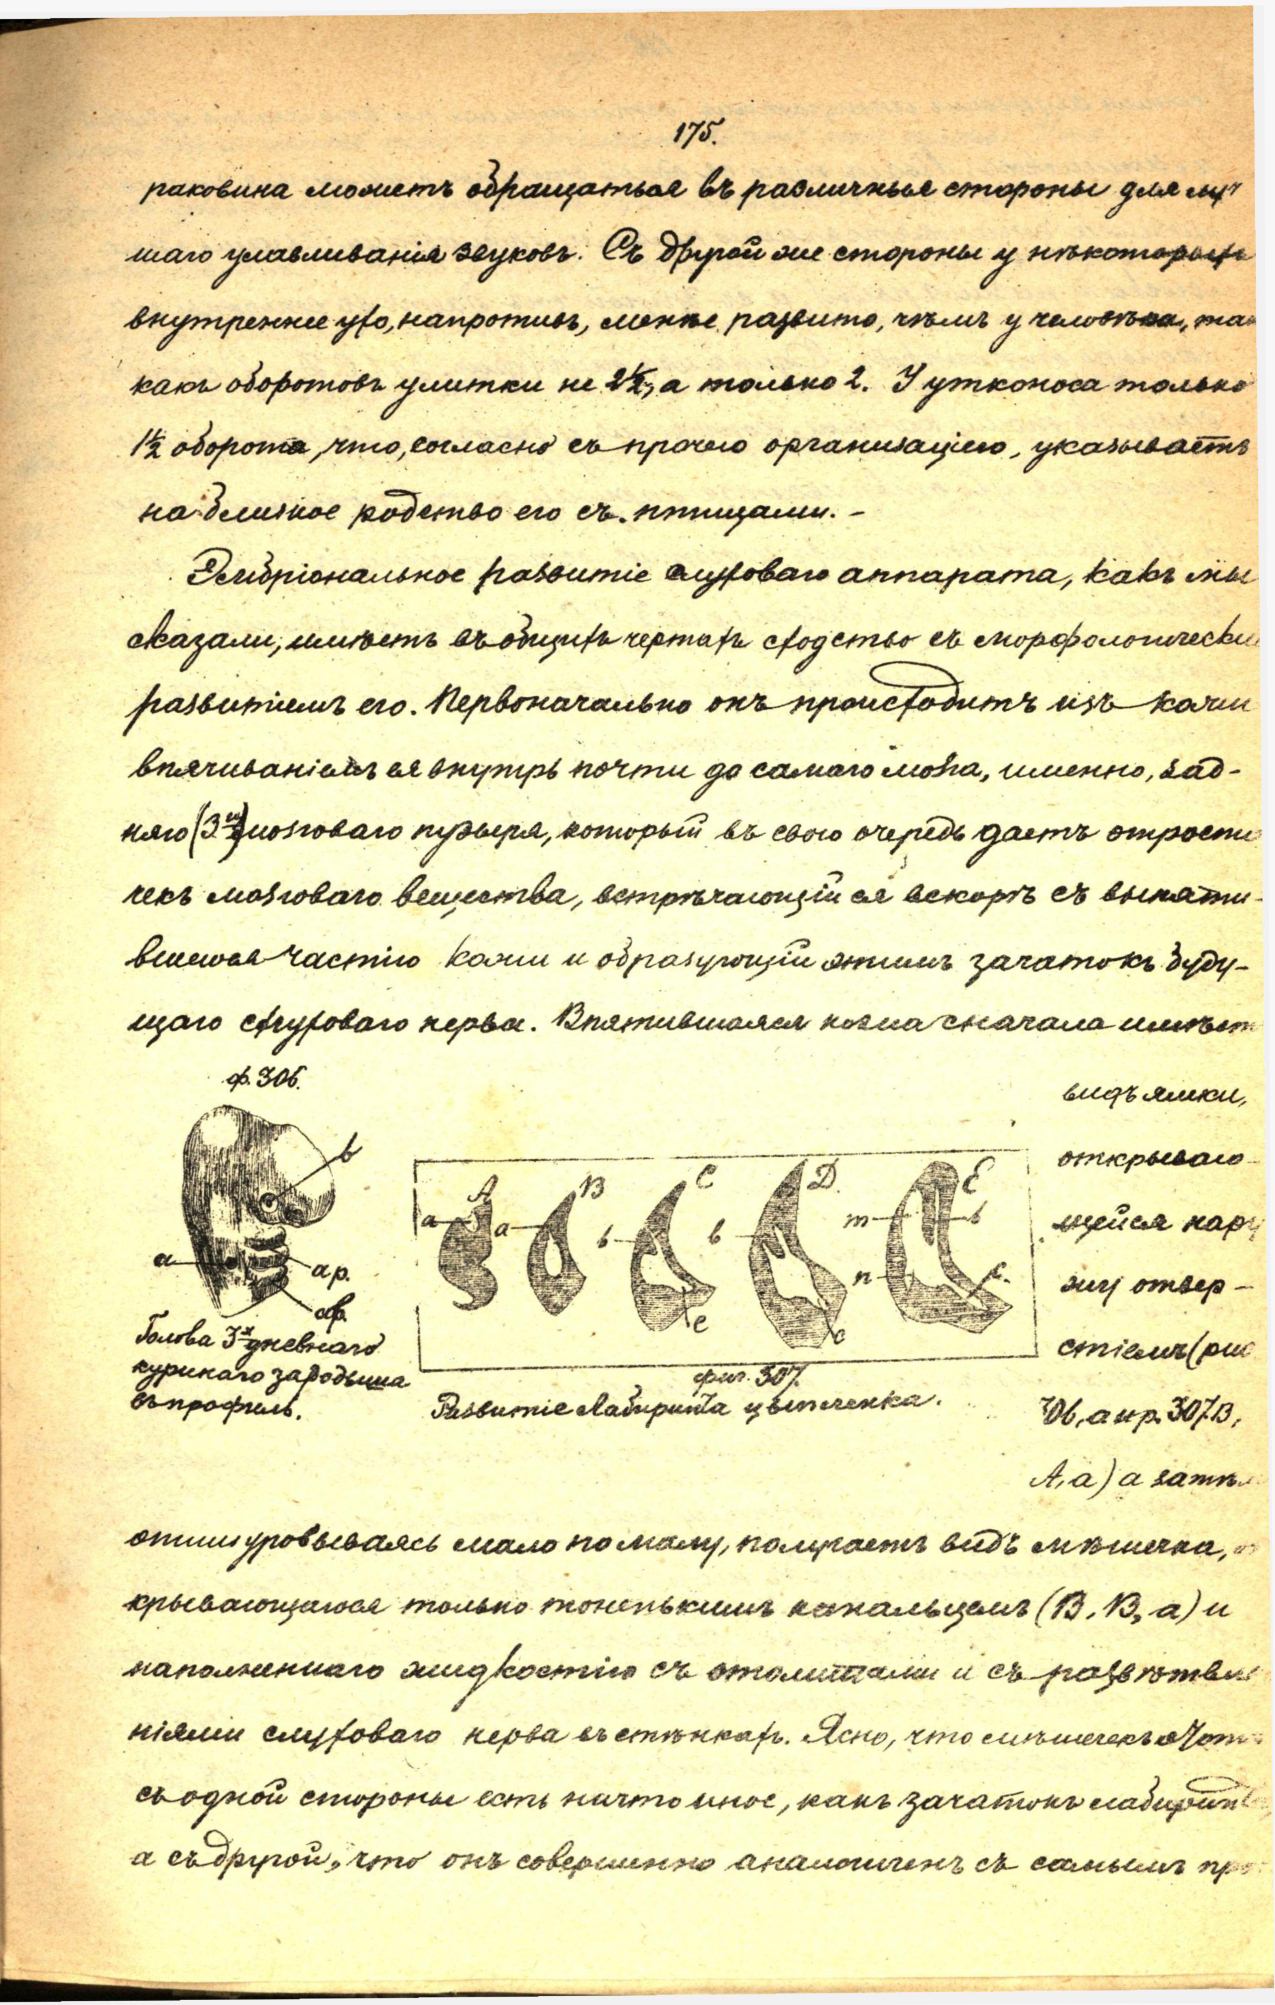 175.
раковина можетъ обращаться въ различныя стороны для луч
шаго улавливанія звуковъ. Съ другой же стороны у нѣкоторыхъ
внутреннее ухо, напротивъ, менѣе развито, чѣмъ у человѣка, так
какъ оборотовъ улитки не 2½, а только 2. У утконоса только
1½ оборота, что, согласно съ прочею организаціею, указываетъ
на близкое родство его съ птицами. –
Эмбріональное развитіе слуховаго аппарата, какъ мы
сказали, имѣетъ въ общихъ чертахъ сходство съ морфологически
развитіемъ его. Первоначально онъ происходитъ изъ кожи
впячиваніемъ ея внутрь почти до самаго мозга, именно, зад-
няго (3го) мозговаго пузыря, который въ свою очередь даетъ отрости
чекъ мозговаго вещества, встрѣчающійся вскорѣ съ впяти-
вшеюся частію кожи и образующій этимъ зачатокъ буду-
щаго слуховаго нерва. Впятившаяся кожа сначала имѣет
ф. 306.
b
a
ap.
ap.
Голова 3х дневнаго
куринаго зародыша
въ профиль.
A B C D. E
a a b b m b
n c.
c c
фиг. 307.
Развитіе Лабиринта цыпленка.
видъ ямки,
открываю-
щейся нару
жу отвер-
стіемъ (рис
306, а и р. 307 В,
А, а) а затѣм
отшнуровываясь мало по малу, получаетъ видъ мѣшечка,
крывающагося только тоненькимъ канальцемъ (В, В, а) и
наполненнаго жидкостію съ отолитами и съ развѣтвле
ніями слуховаго нерва въ стѣнкахъ. Ясно, что мѣшечекъ
съ одной стороны есть ничто иное, какъ зачатокъ лабиринта
а съ другой, что онъ совершенно аналогиченъ съ самымъ про